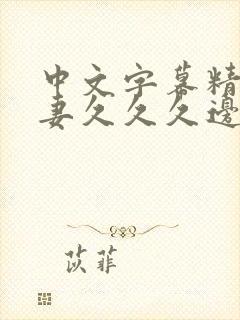 中文字幕精
妻久久久邊
苡菲